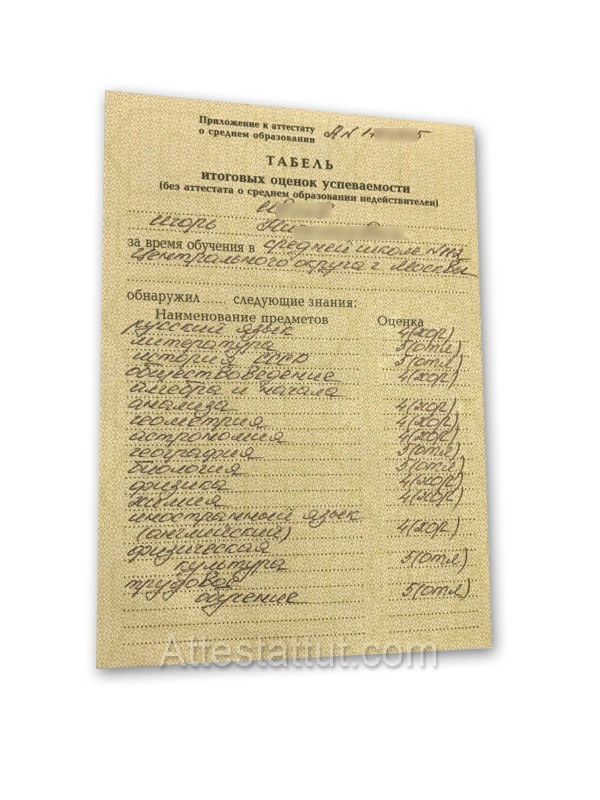 Приложение к аттестату
о среднем образовании
ТАБЕЛЬ
итоговых оценок успеваемости
(без аттестата о среднем образовании недействителен)
Игорь
за время обучения в средней школе
Центрального округа г. Москвы
обнаружил ..... следующие знания:
Наименование предметов Оценка
русский язык 4(хор)
литература 5(отл)
история СССР 5(отл)
обществоведение 4(хор)
алгебра и начала
анализа 4(хор)
геометрия 4(хор)
астрономия 4(хор)
география 5(отл)
биология 5(отл)
физика 4(хор)
химия 4(хор)
иностранный язык
(английский) 4(хор)
физическая
культура 5(отл)
трудовое
обучение 5(отл)
Attestattut.com